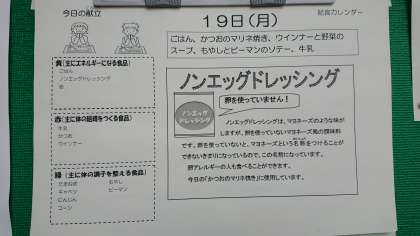 今日の献立
給食カレンダー
19日(月)
ごはん、かつおのマリネ焼き、ウインナーと野菜の
スープ、もやしとピーマンのソテー、牛乳
黄(主にエネルギーになる食品)
ごはん
ノンエッグドレッシング
油
赤(主に体の組織をつくる食品)
牛乳
かつお
ウインナー
緑(主に体の調子を整える食品)
たまねぎ もやし
キャベツ ピーマン
にんじん
コーン
ノンエッグドレッシング
卵を使っていません!
ノンエッグ
ドレッシング
ノンエッグドレッシングは、マヨネーズのような味が
しますが、卵を使っていないマヨネーズ風の調味料
です。卵を使っていないと、マヨネーズという名称をつけることが
できないきまりになっているので、この名前になっています。
卵アレルギーの人も食べることができます。
今日の「かつおのマリネ焼き」に使用しています。